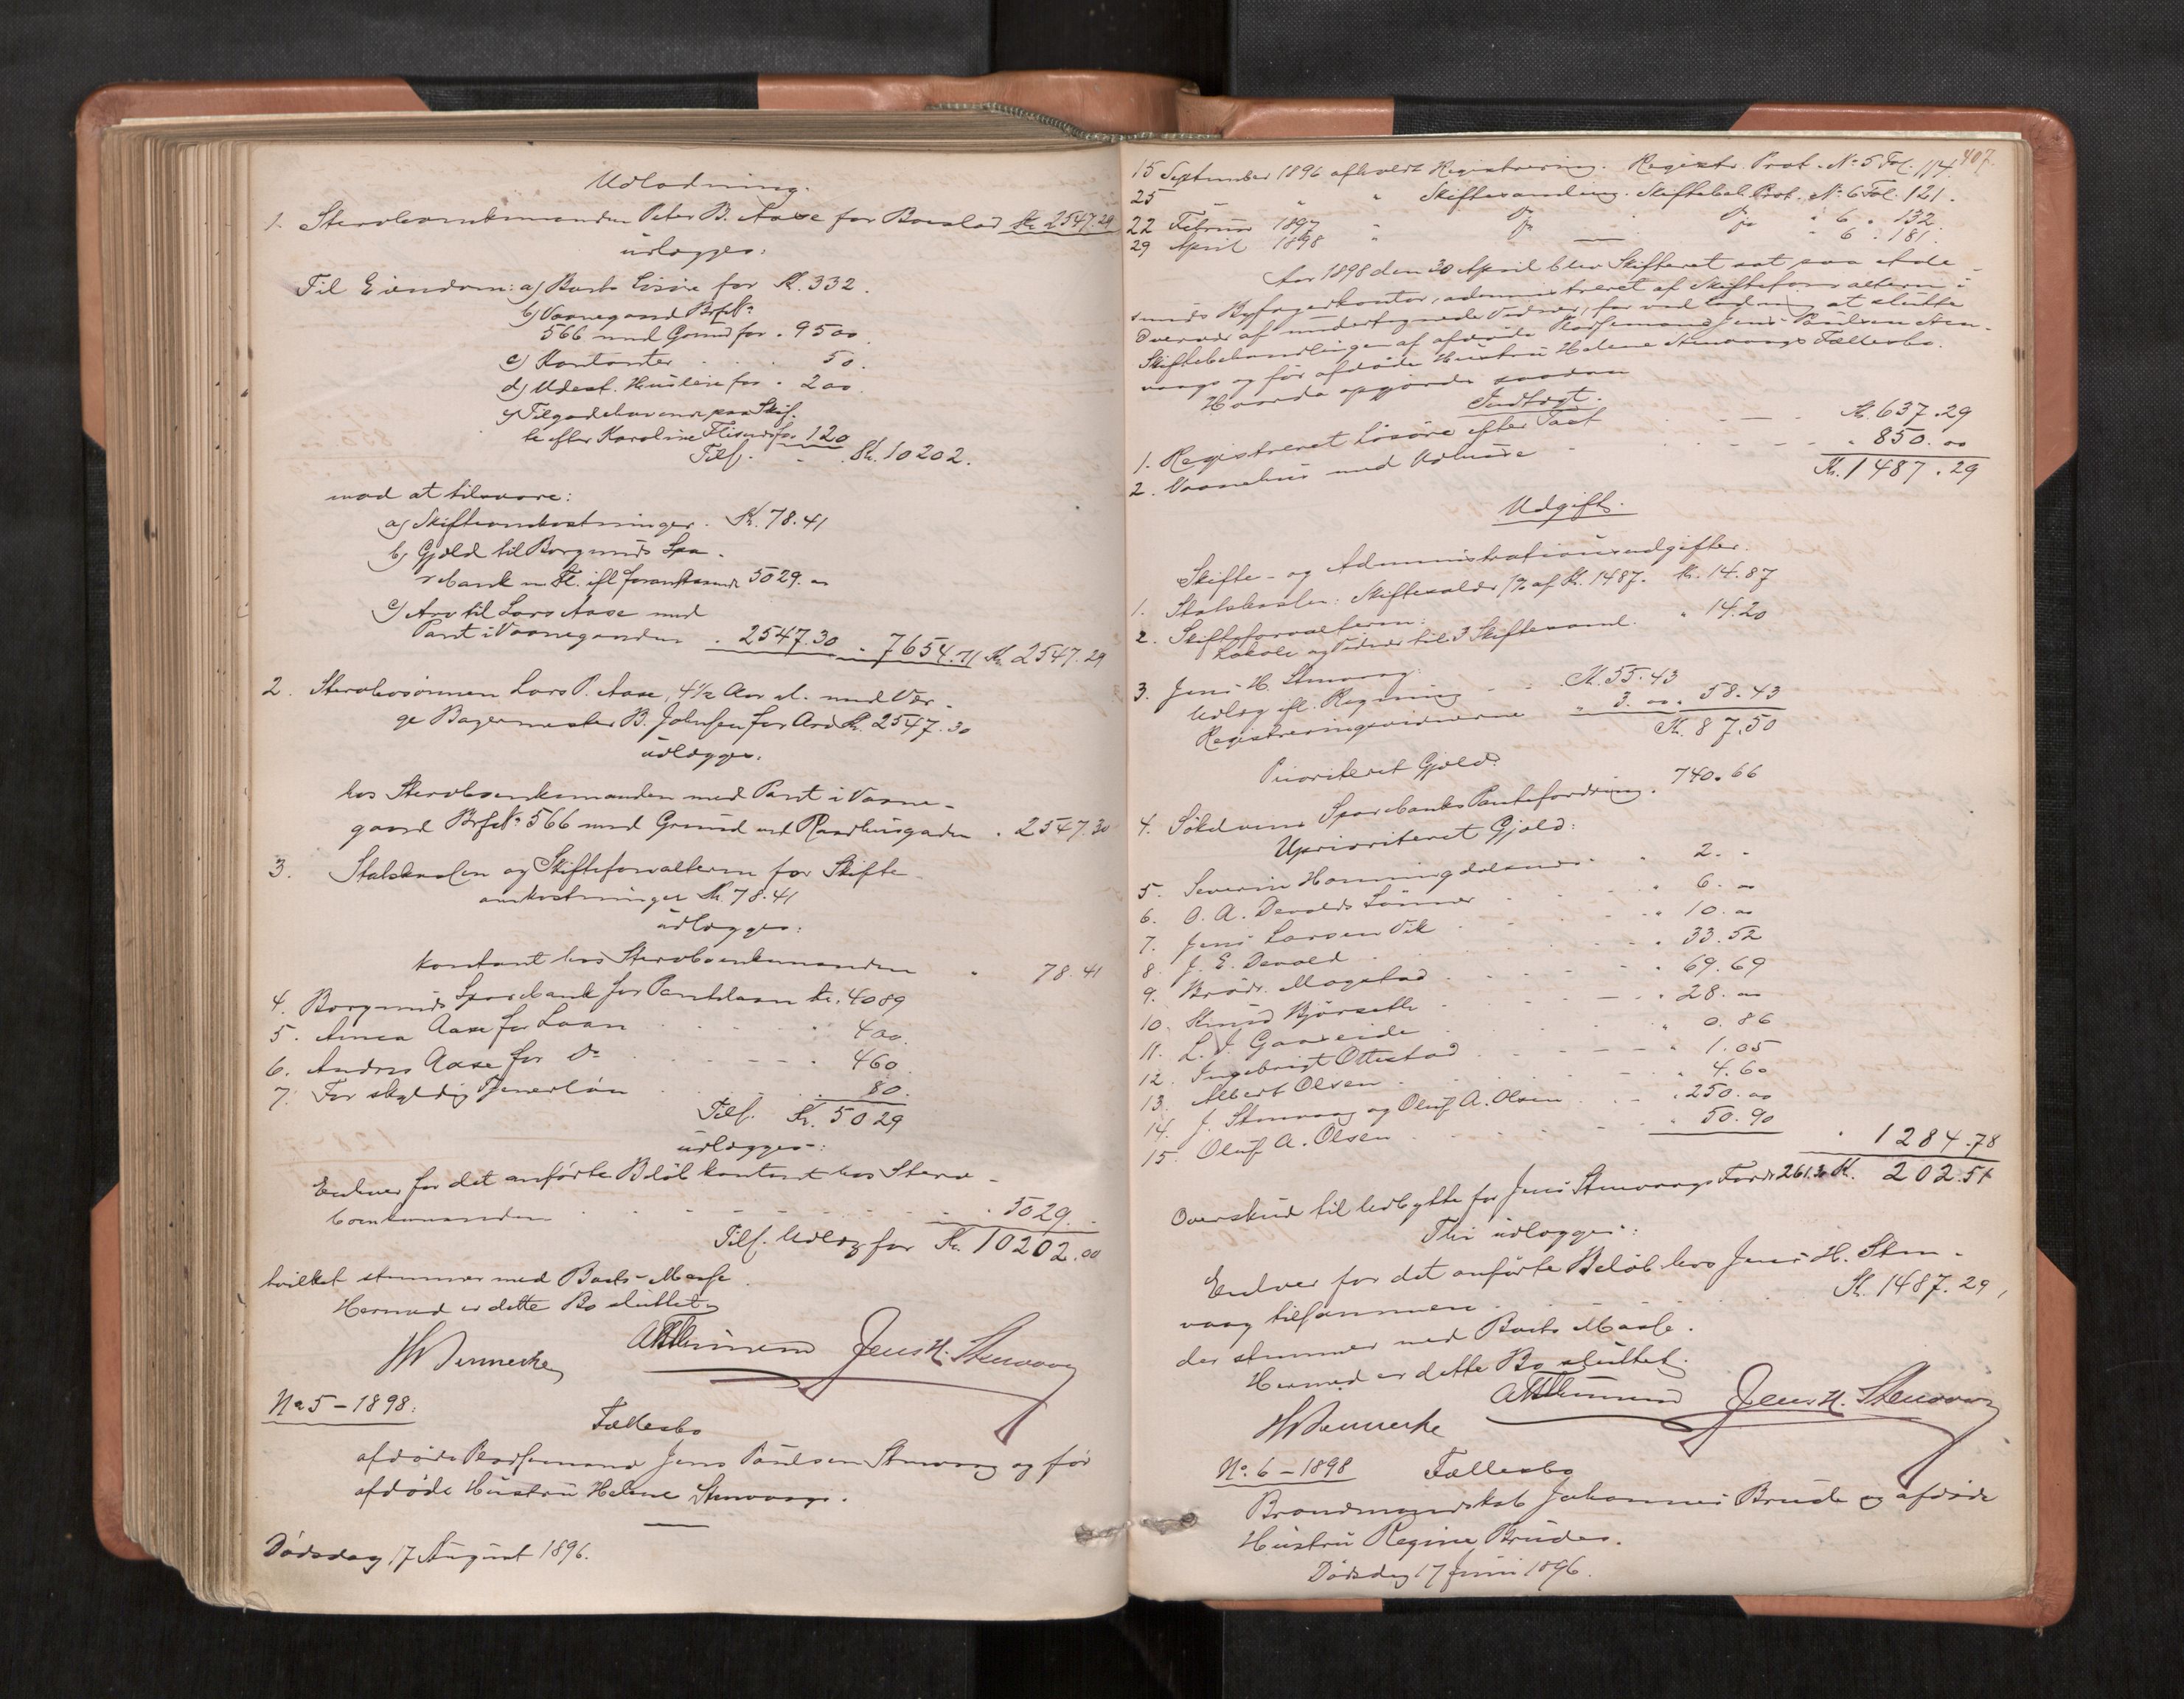 Udlodning.
1. Stervboenkemanden Peter B. Aase for Boeslod Kr. 2547.29
udlægges:
Til Eiendom: a) Boets Løsøre for Kr. 332.
b) Vaanegaard Brfst. No
566 med Grund for . 9500.
c) Kontanter . . . 50.
d) Udest. Husleie for . 200.
e) Tilgodehavende paa Skif-
te efter Karoline for 120
Tils. Kr. 10202.
mod at tilsvare:
a) Skifteomkostninger . Kr. 78.41
b) Gjæld til Borgunds Spa-
rebank m. fl. ifl. foranstaaende 5029. "
c) Arv til Lars Aase med
Pant i Vaanegaarden . 2547.30 " 7654.71 Kr. 2547.29
2. Stervbosønnen Lars P. Aase, 4½ Aar gl. med Vær-
ge Bagermester B. Johnsen for Arv Kr. 2547.30
udlægges:
hos Stervboenkemanden med Pant i Vaane-
gaard Brfst. No 566 med Grund ved Raadhusgaden . 2547.30
3. Statskassen og Skifteforvalteren for Skifte-
omkostninger Kr. 78.41
udlægges:
kontant hos Stervboenkemanden " 78.41
4. Borgunds Sparebank for Pantelaan Kr. 4089
5. Anna Aase for Laan . . . . " 400.
6. Andres Aase for Do . . . . . 460.
7. For skyldig Tjenerløn . . . . 80.
Tils. Kr. 5029
udlægges:
Enhver for det anførte Beløb kontant hos Sterv-
boenkemanden . . . . . . . 5029. -
Tils. Udlæg for Kr. 10202.00
hvilket stemmer med Boets Masse.
Hermed er dette Bo sluttet.
Jens H. Stenvaag
No 5 - 1898.
Fællesbo
afdøde Jens Paulsen Stenvaag og før
afdøde Hustru Helene Stenvaags.
Dødsdag 17 August 1896.
407.
15 September 1896 afholdt Registrering. Registr. Prot. No 5 Fol. 114.
25 - " " Skiftesamling. Skiftebeh. Prot. No 6 Fol. 121.
22 Februar 1897 " Do Do " 6 " 132
29 April 1898 " — Do " 6 " 181.
Aar 1898 den 30 April blev Skifteret sat paa Aale-
sunds Byfogedkontor, administreret af Skifteforvalteren i
Overvær af undertegnede Vidner, for ved Lodning at slutte
Skiftebehandlingen af afdøde Jens Paulsen Sten-
vaags og før afdøde Hustru Helene Stenvaags Fællesbo.
Hvorda opgjordes saadan
Indtægt.
1. Registreret Løsøre efter Taxt . — — . Kr. 637.29
2. Vaanehus med Udhuse . . . . " 850.00
Kr. 1487.29
Udgift.
Skifte- og Administrationsudgifter.
1. Statskassen: Skiftesalær 1% af Kr. 1487. Kr. 14.87
2. Skifteforvalteren:
Lokale og Vidner til 3 Skiftesaml. " 14.20
3. Jens H. Stenvaag:
Udlæg ifl. Regning . . . Kr. 55.43
Registreringsvidnerne " 3.00 " 58.43
Kr. 87,50
Prioriteret Gjæld:
4. Søkelvens Sparebanks Pantefordring . 740.66
Uprioriteret Gjæld:
5. Severin Honningdalsnes . " 2. -
6. O. A. Devolds Sønner . . . " 6. "
7. Jens Larsen Vik . . . " 10. "
8. J. E. Devold . . . " 33.52
9. Brødr. Mogstad . . . " 69.69
10. Knud Bjørseth . . . " 28. "
11. L. J. Gaaseide . . . " 0.86
12. Ingebrigt Ottestad . . . " 1.05
13. Albert Olsen . . . " 4.60
14. J. Stenvaag og Oluf A. Olsen . . . 250.00
15. Oluf A. Olsen . . . " 50.90
" 1284.78
Overskud til Udbytte for Jens Stenvaags Fordr. 261.30 Kr. 202.51
Thi udlægges:
Enhver for det anførte Beløb hos Jens H. Sten-
vaag tilsammen . . . Kr. 1487.29,
der stemmer med Boets Masse.
Hermed er dette Bo sluttet.
Jens H. Stenvaag
No. 6 - 1898 Fællesbo
Johannes Brude og afdøde
Hustru Regine Brudes.
Dødsdag 17 Juni 1896.